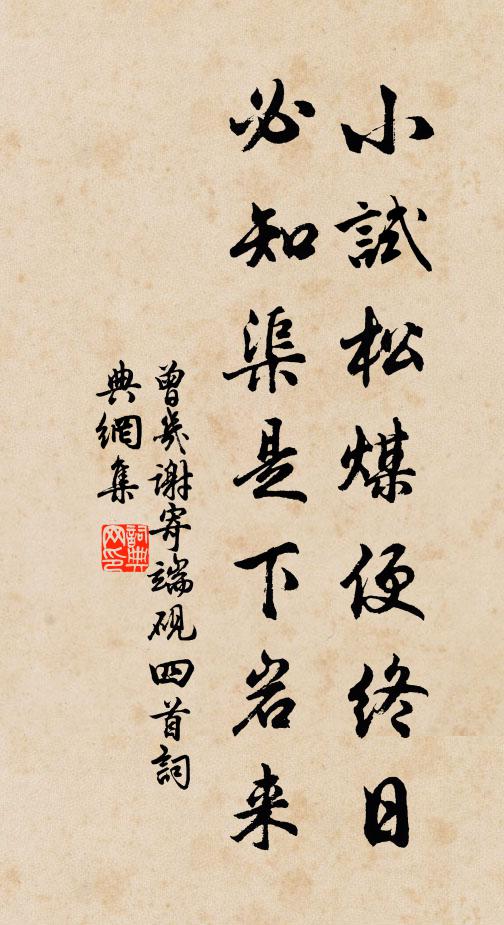 小試松煤便終日
必知渠是下岩来
曾幾謝寄端硯四首詞
典網集
詞典网印